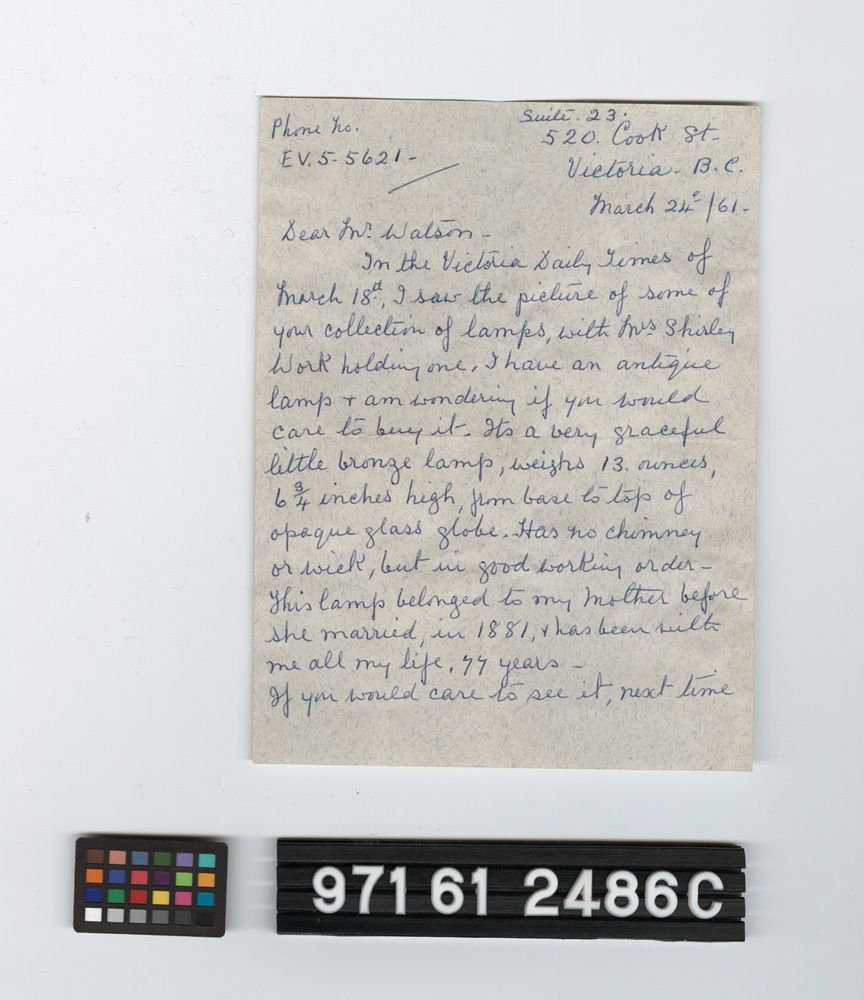 Phone No.
EV. 5-5621-
Suite. 23.
520. Cook St-
Victoria - B.C.
March 24th /61-
Dear Mr. Watson -
In the Victoria Daily Times of
March 18th, I saw the picture of some of
your collection of lamps, with Mrs Shirley
Work holding one. I have an antique
lamp + am wondering if you would
care to buy it. Its a very graceful
little bronze lamp, weighs 13. ounces,
6 3/4 inches high, from base to top of
opaque glass globe. Has no chimney
or wick, but in good working order -
This lamp belonged to my Mother before
she married, in 1881, + has been with
me all my life. 77 years -
If you would care to see it, next time
971 61 2486C